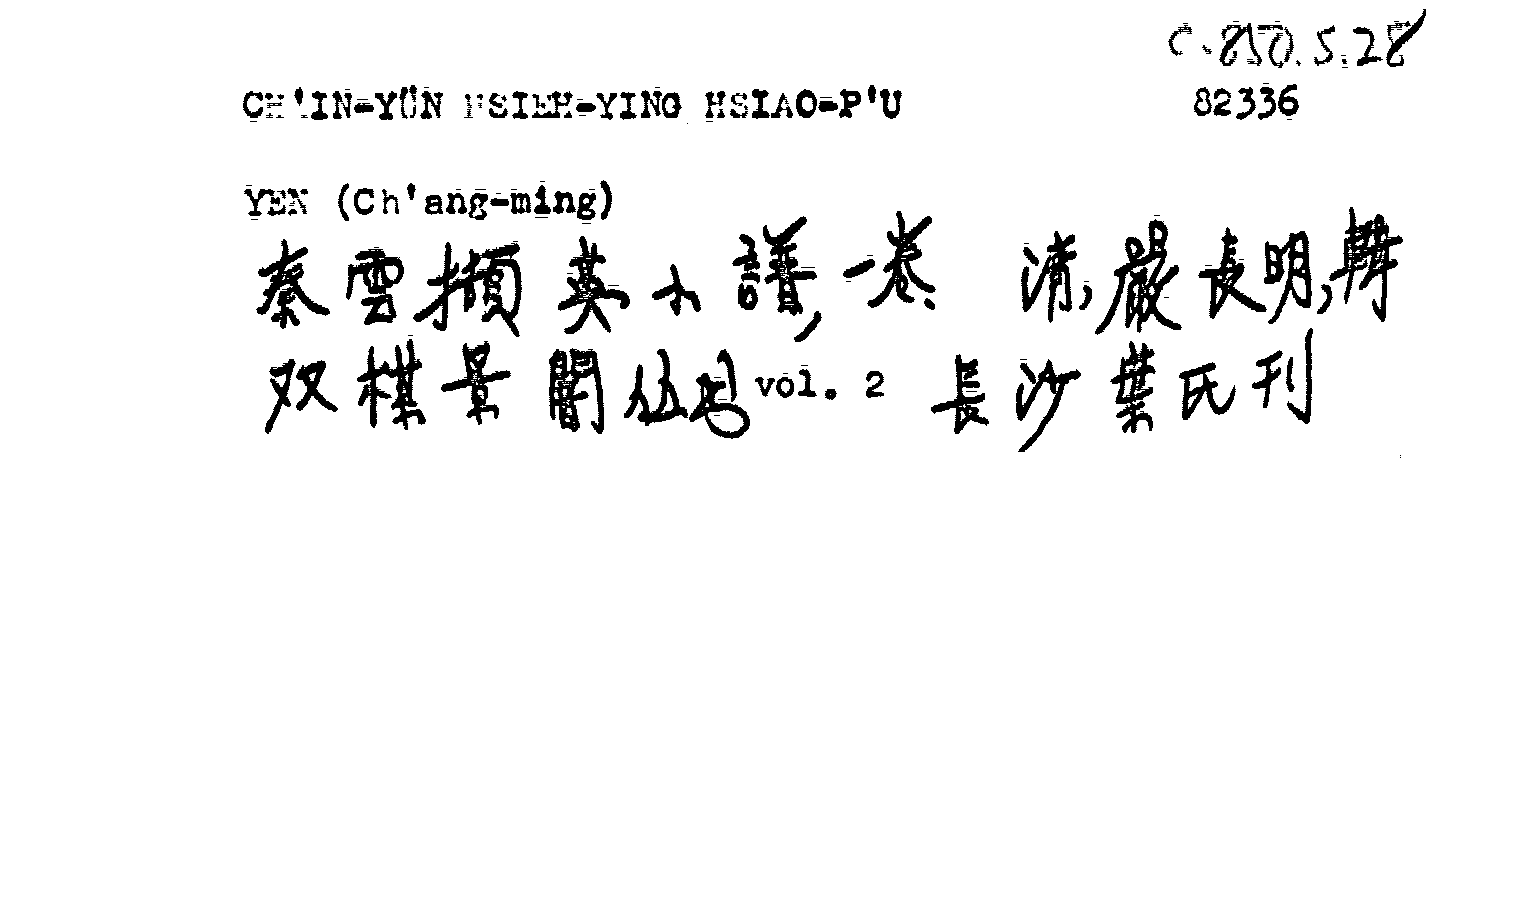 C.850.5.28
CH'IN-YÜN HSIEH-YING HSIAO-P'U 82336
YEN (Ch'ang-ming)
秦雲擷英小譜, 一卷 清, 嚴長明, 輯
双楳景闇丛书 vol. 2 長沙葉氏刊